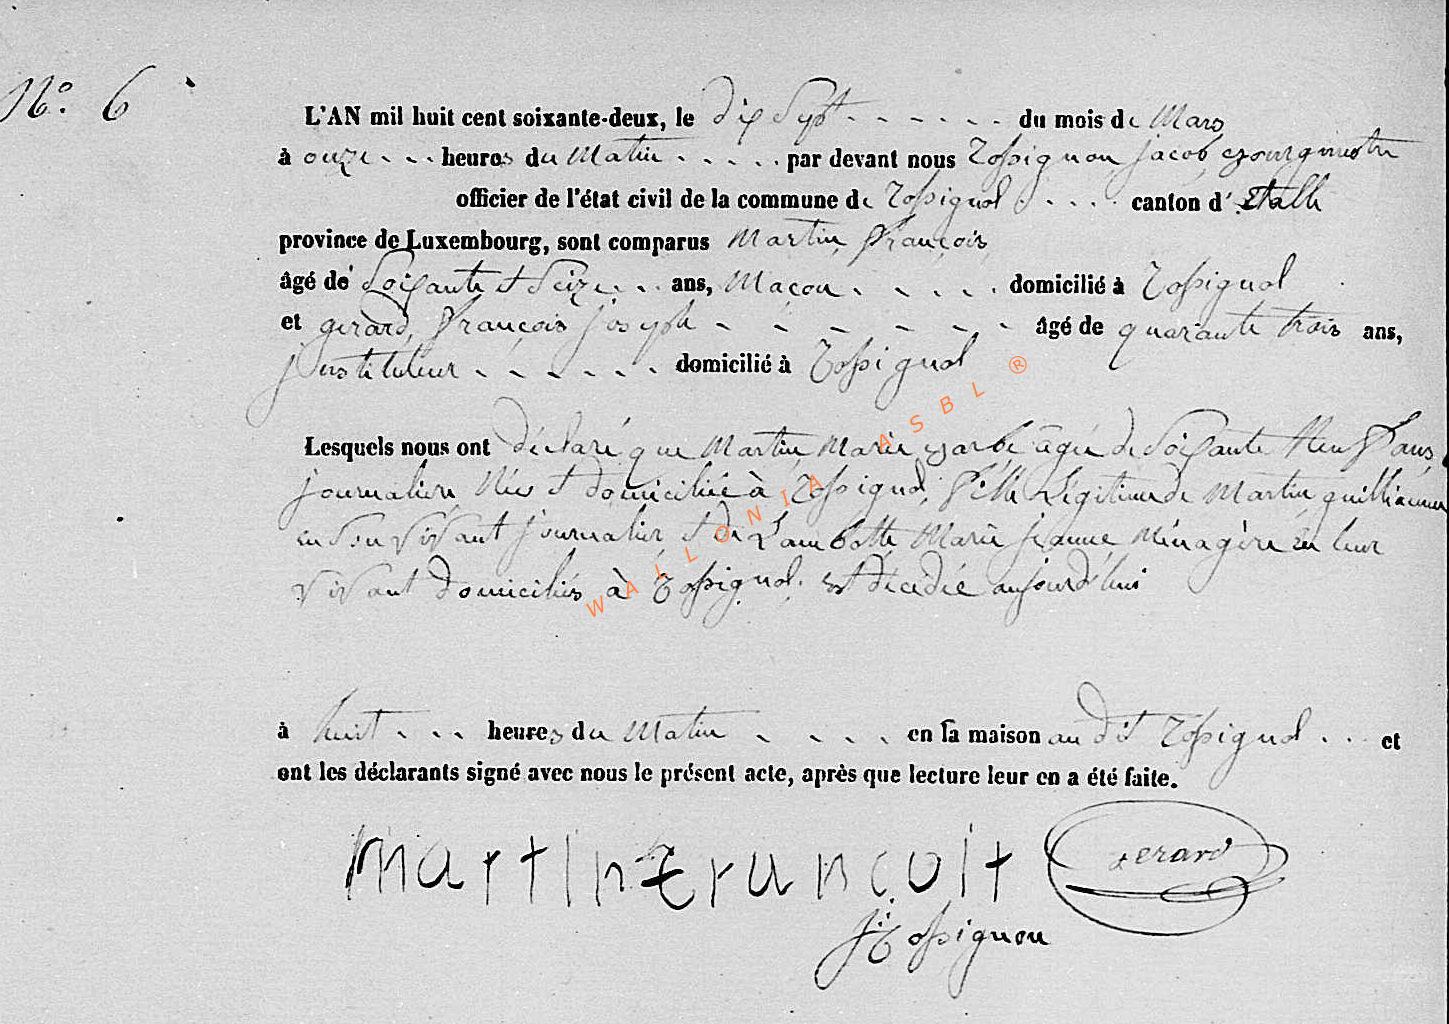 N.o 6
L'AN mil huit cent soixante-deux, le dix Sept - - - - - - du mois de Mars
à onze - - - heures du Matin - - - - - par devant nous Rossignon Jacob, Bourgmestre
officier de l'état civil de la commune de Rossignol - - - - canton d'Etalle
province de Luxembourg, sont comparus Martin, François,
âgé de Soixante et Seize - - ans, Maçon - - - - - domicilié à Rossignol
et gerard, françois joseph - - - - - - - âgé de quarante trois ans,
jnstituteur - - - - - - - domicilié à Rossignol
Lesquels nous ont déclaré que Martin Marie Barbe agée de Soixante Neuf ans,
journalière Née et domiciliée à Rossignol, fille Légitime de Martin guilliaume
en son vivant journalier, et de Lambotte Marie jeanne Ménagère en leur
vivant domiciliés à Rossignol. est décédée aujourd'hui
à huit - - - heures du Matin - - - - en sa maison au dit Rossignol - - - et
ont les déclarants signé avec nous le présent acte, après que lecture leur en a été faite.
martin françoit gerard
J: Rossignon
WALLONIA ASBL ®